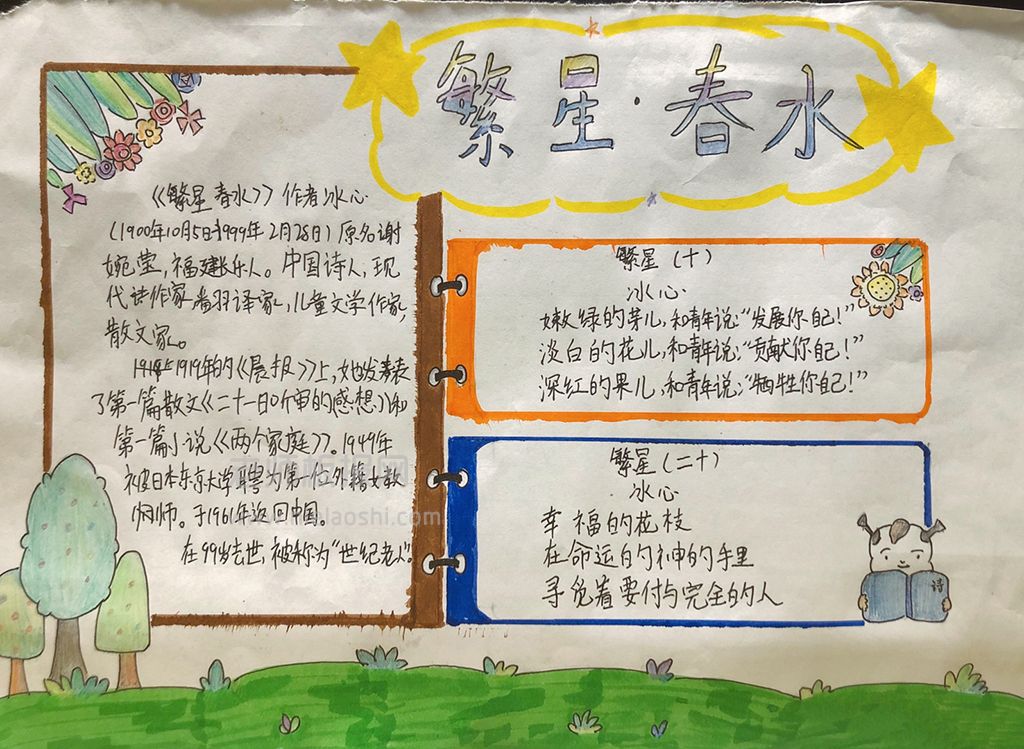 繁星·春水
《繁星 春水》作者冰心
(1900年10月5日-1999年2月28日)原名谢
婉莹,福建长乐人。中国诗人,现
代诗作家 翻译家,儿童文学作家,
散文家。
1919年的《晨报》上,她发表
了第一篇散文《二十一日听审的感想》和
第一篇小说《两个家庭》。1949年
被日本东京大学聘为第一位外籍女教
师。于1961年返回中国。
在99岁去世,被称为"世纪老人"。
繁星(十)
冰心
嫩绿的芽儿,和青年说:"发展你自己!"
淡白的花儿,和青年说:"贡献你自己!"
深红的果儿,和青年说:"牺牲你自己!"
繁星(二十)
冰心
幸福的花枝
在命运的神的手里
寻觅着要付与完全的人
诗